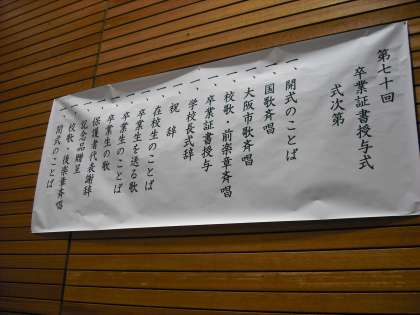 第七十回
卒業証書授与式
式次第
一、開式のことば
一、国歌斉唱
一、大阪市歌斉唱
一、校歌・前楽章斉唱
一、卒業証書授与
一、学校長式辞
一、祝辞
一、在校生のことば
一、卒業生を送る歌
一、卒業生のことば
一、卒業生の歌
一、保護者代表謝辞
一、記念品贈呈
一、校歌・後楽章斉唱
一、閉式のことば